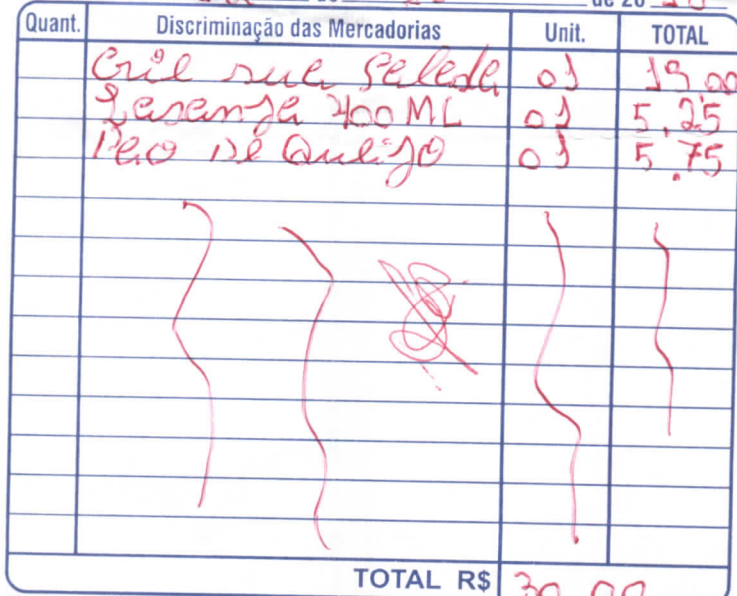 de de 20 20
Quant. Discriminação das Mercadorias Unit. TOTAL
Salada 01 19.00
Laranja 400 ML 01 5.25
Pao de Queijo 01 5.75
TOTAL R$ 30,00